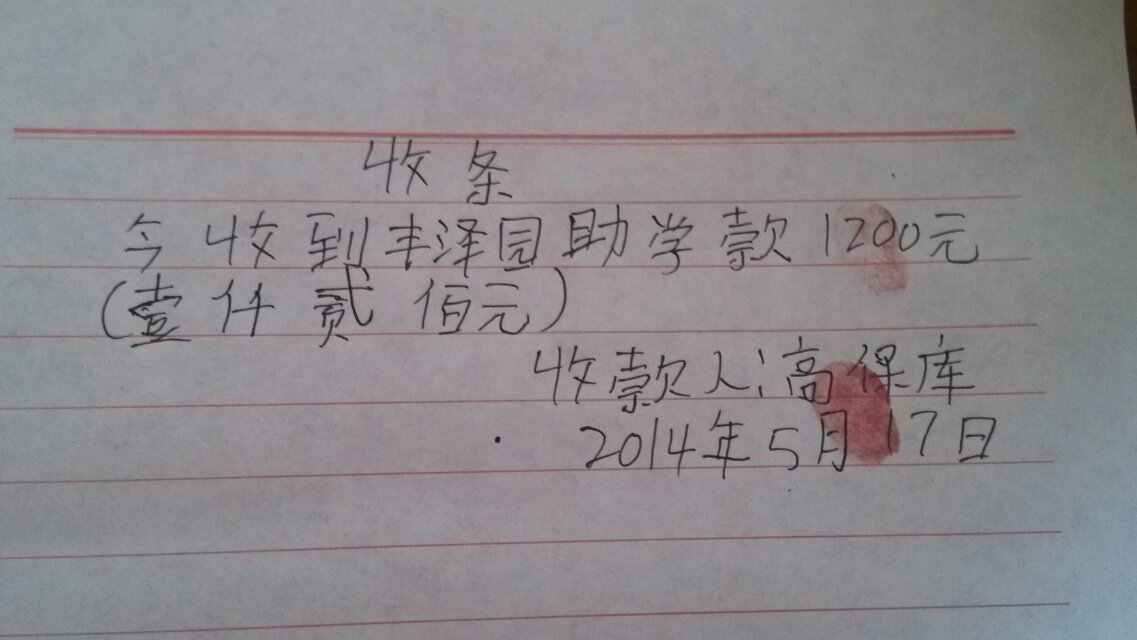 收条
今收到丰泽园助学款1200元
(壹仟贰佰元)
收款人:高保库
2014年5月17日